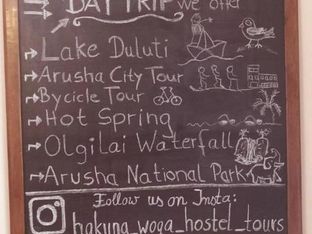 DAY TRIP we offer
Lake Duluti
Arusha City Tour
Bycicle Tour
Hot Spring
Olgilai Waterfall
Arusha National Park
Follow us on Insta:
hakuna_woga_hostel_tours